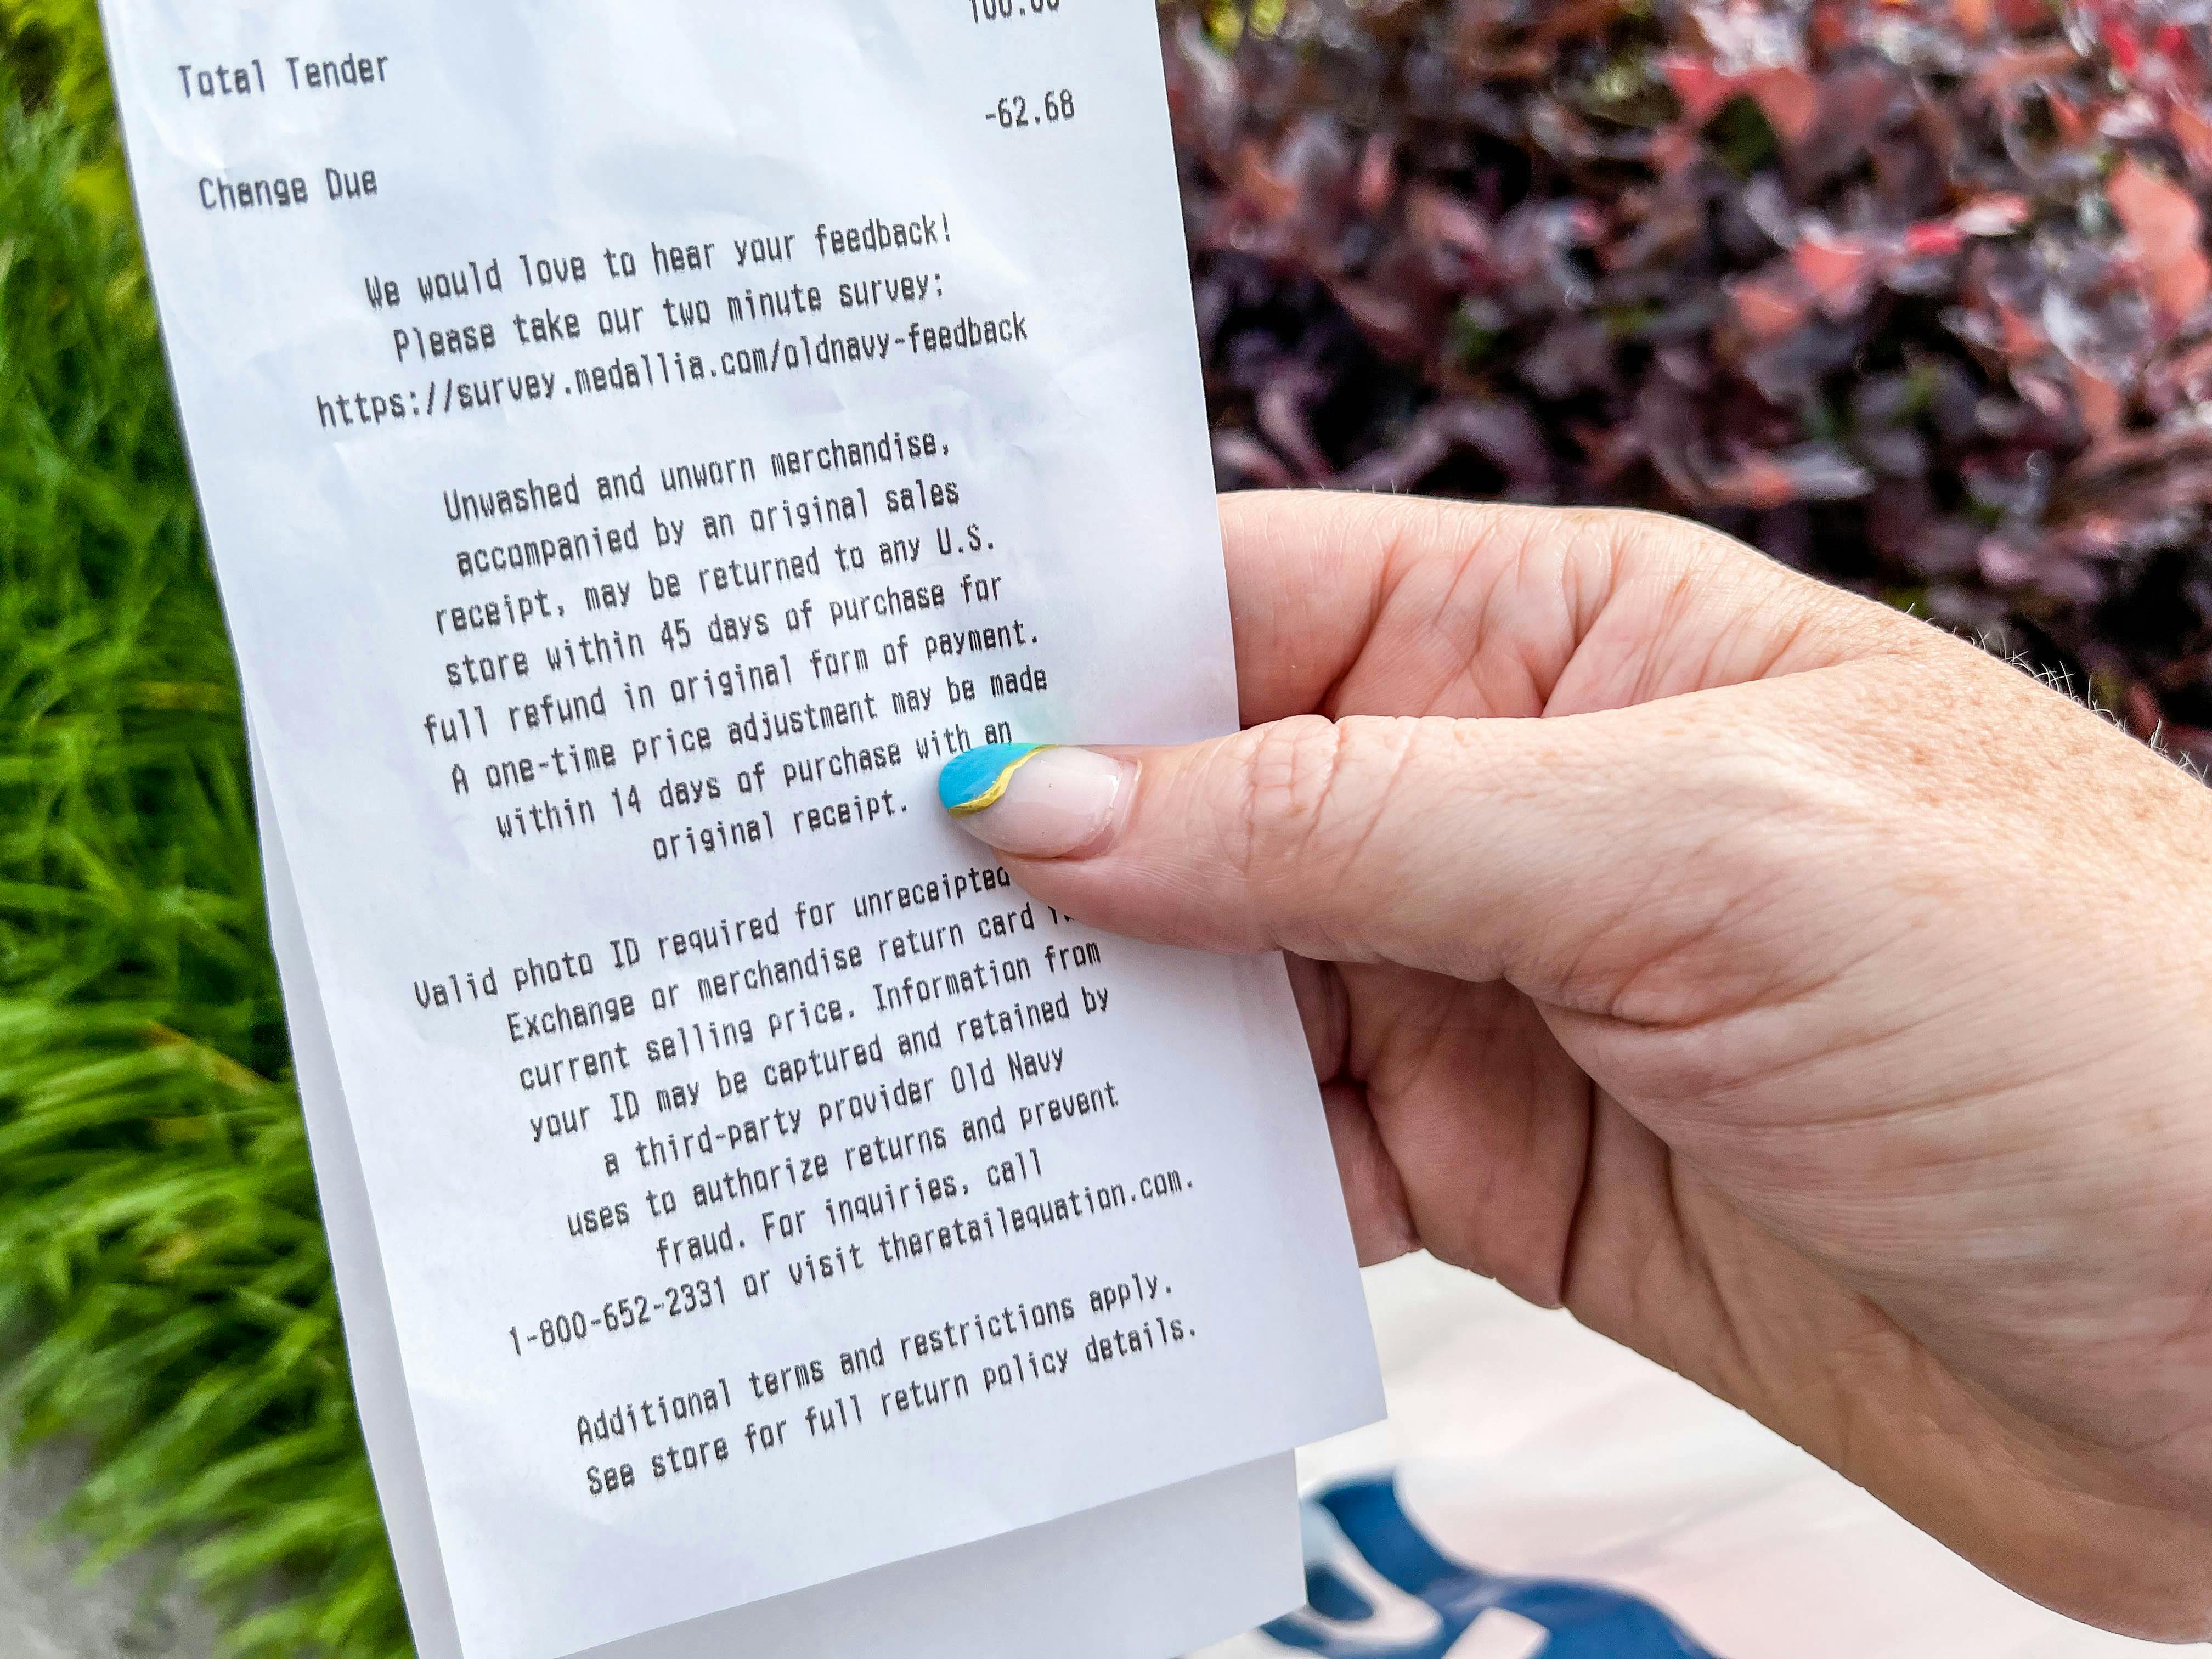 100.00
Total Tender
-62.68
Change Due
We would love to hear your feedback!
Please take our two minute survey:
https://survey.medallia.com/oldnavy-feedback
Unwashed and unworn merchandise,
accompanied by an original sales
receipt, may be returned to any U.S.
store within 45 days of purchase for
full refund in original form of payment.
A one-time price adjustment may be made
within 14 days of purchase with an
original receipt.
Valid photo ID required for unreceipted
Exchange or merchandise return card
current selling price. Information from
your ID may be captured and retained by
a third-party provider Old Navy
uses to authorize returns and prevent
fraud. For inquiries, call
1-800-652-2331 or visit theretailequation.com.
Additional terms and restrictions apply.
See store for full return policy details.